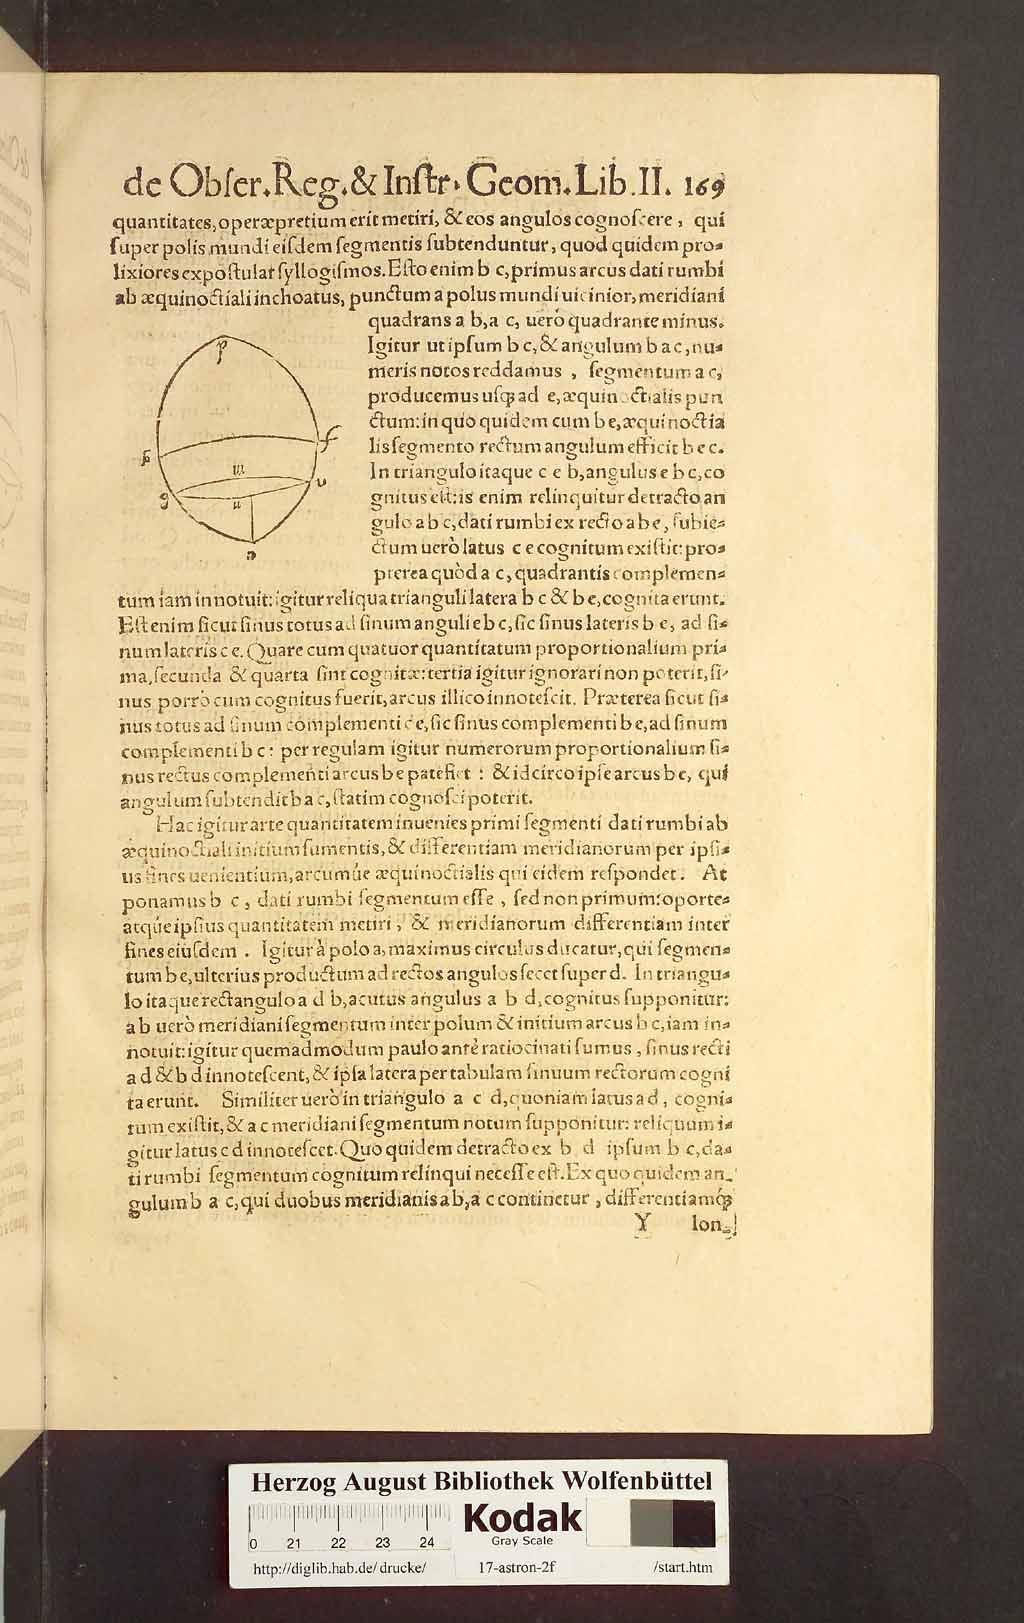 de Obſer. Reg. & Inſtr. Geom. Lib. II. 169
quantitates, operæpretium erit metiri, & eos angulos cognoſcere, qui
ſuper polis mundi eiſdem ſegmentis ſubtenduntur, quod quidem pro-
lixiores expoſtulat ſyllogiſmos. Eſto enim b c, primus arcus dati rumbi
ab æquinoctiali inchoatus, punctum a polus mundi uicinior, meridiani
quadrans a b, a c, uerò quadrante minus.
Igitur ut ipſum b c, & angulum b a c, nu-
meris notos reddamus, ſegmentum a c,
producemus uſq; ad e, æquinoctialis pun
ctum: in quo quidem cum b e, æquinoctia
lis ſegmento rectum angulum efficit b e c.
In triangulo itaque c e b, angulus e b c, co
gnitus eſt: is enim relinquitur detracto an
gulo a b c, dati rumbi ex recto a b e, ſubie-
ctum uerò latus c e cognitum exiſtit: pro-
pterea quòd a c, quadrantis complemen-
p
f
p
m
g
n
u
a
tum iam innotuit: igitur reliqua trianguli latera b c & b e, cognita erunt.
Eſt enim ſicut ſinus totus ad ſinum anguli e b c, ſic ſinus lateris b e, ad ſi-
num lateris c e. Quare cum quatuor quantitatum proportionalium pri-
ma, ſecunda & quarta ſint cognitæ: tertia igitur ignorari non poterit, ſi-
nus porrò cum cognitus fuerit, arcus illico innoteſcit. Præterea ſicut ſi-
nus totus ad ſinum complementi c e, ſic ſinus complementi b e, ad ſinum
complementi b c: per regulam igitur numerorum proportionalium ſi-
nus rectus complementi arcus b e patefiet: & idcirco ipſe arcus b e, qui
angulum ſubtendit b a c, ſtatim cognoſci poterit.
Hac igitur arte quantitatem inuenies primi ſegmenti dati rumbi ab
æquinoctiali initium ſumentis, & differentiam meridianorum per ipſi-
us fines uenientium, arcumúe æquinoctialis qui eidem reſpondet. At
ponamus b c, dati rumbi ſegmentum eſſe, ſed non primum: oporte-
atq́ue ipſius quantitatem metiri, & meridianorum differentiam inter
fines eiuſdem. Igitur à polo a, maximus circulus ducatur, qui ſegmen-
tum b e, ulterius productum ad rectos angulos ſecet ſuper d. In triangu-
lo itaque rectangulo a d b, acutus angulus a b d, cognitus ſupponitur:
ab uerò meridiani ſegmentum inter polum & initium arcus b c, iam in-
notuit: igitur quemadmodum paulo antè ratiocinati ſumus, ſinus recti
a d & b d innoteſcent, & ipſa latera per tabulam ſinuum rectorum cogni
ta erunt. Similiter uerò in triangulo a c d, quoniam latus a d, cogni-
tum exiſtit, & a c meridiani ſegmentum notum ſupponitur: reliquum i-
gitur latus c d innoteſcet. Quo quidem detracto ex b d ipſum b c, da-
ti rumbi ſegmentum cognitum relinqui neceſſe eſt. Ex quo quidem an-
gulum b a c, qui duobus meridianis a b, a c continetur, differentiamq́;
Y lon-
Herzog August Bibliothek Wolfenbüttel
0 21 22 23 24
Kodak
Gray Scale
http://diglib.hab.de/drucke/ 17-astron-2f /start.htm